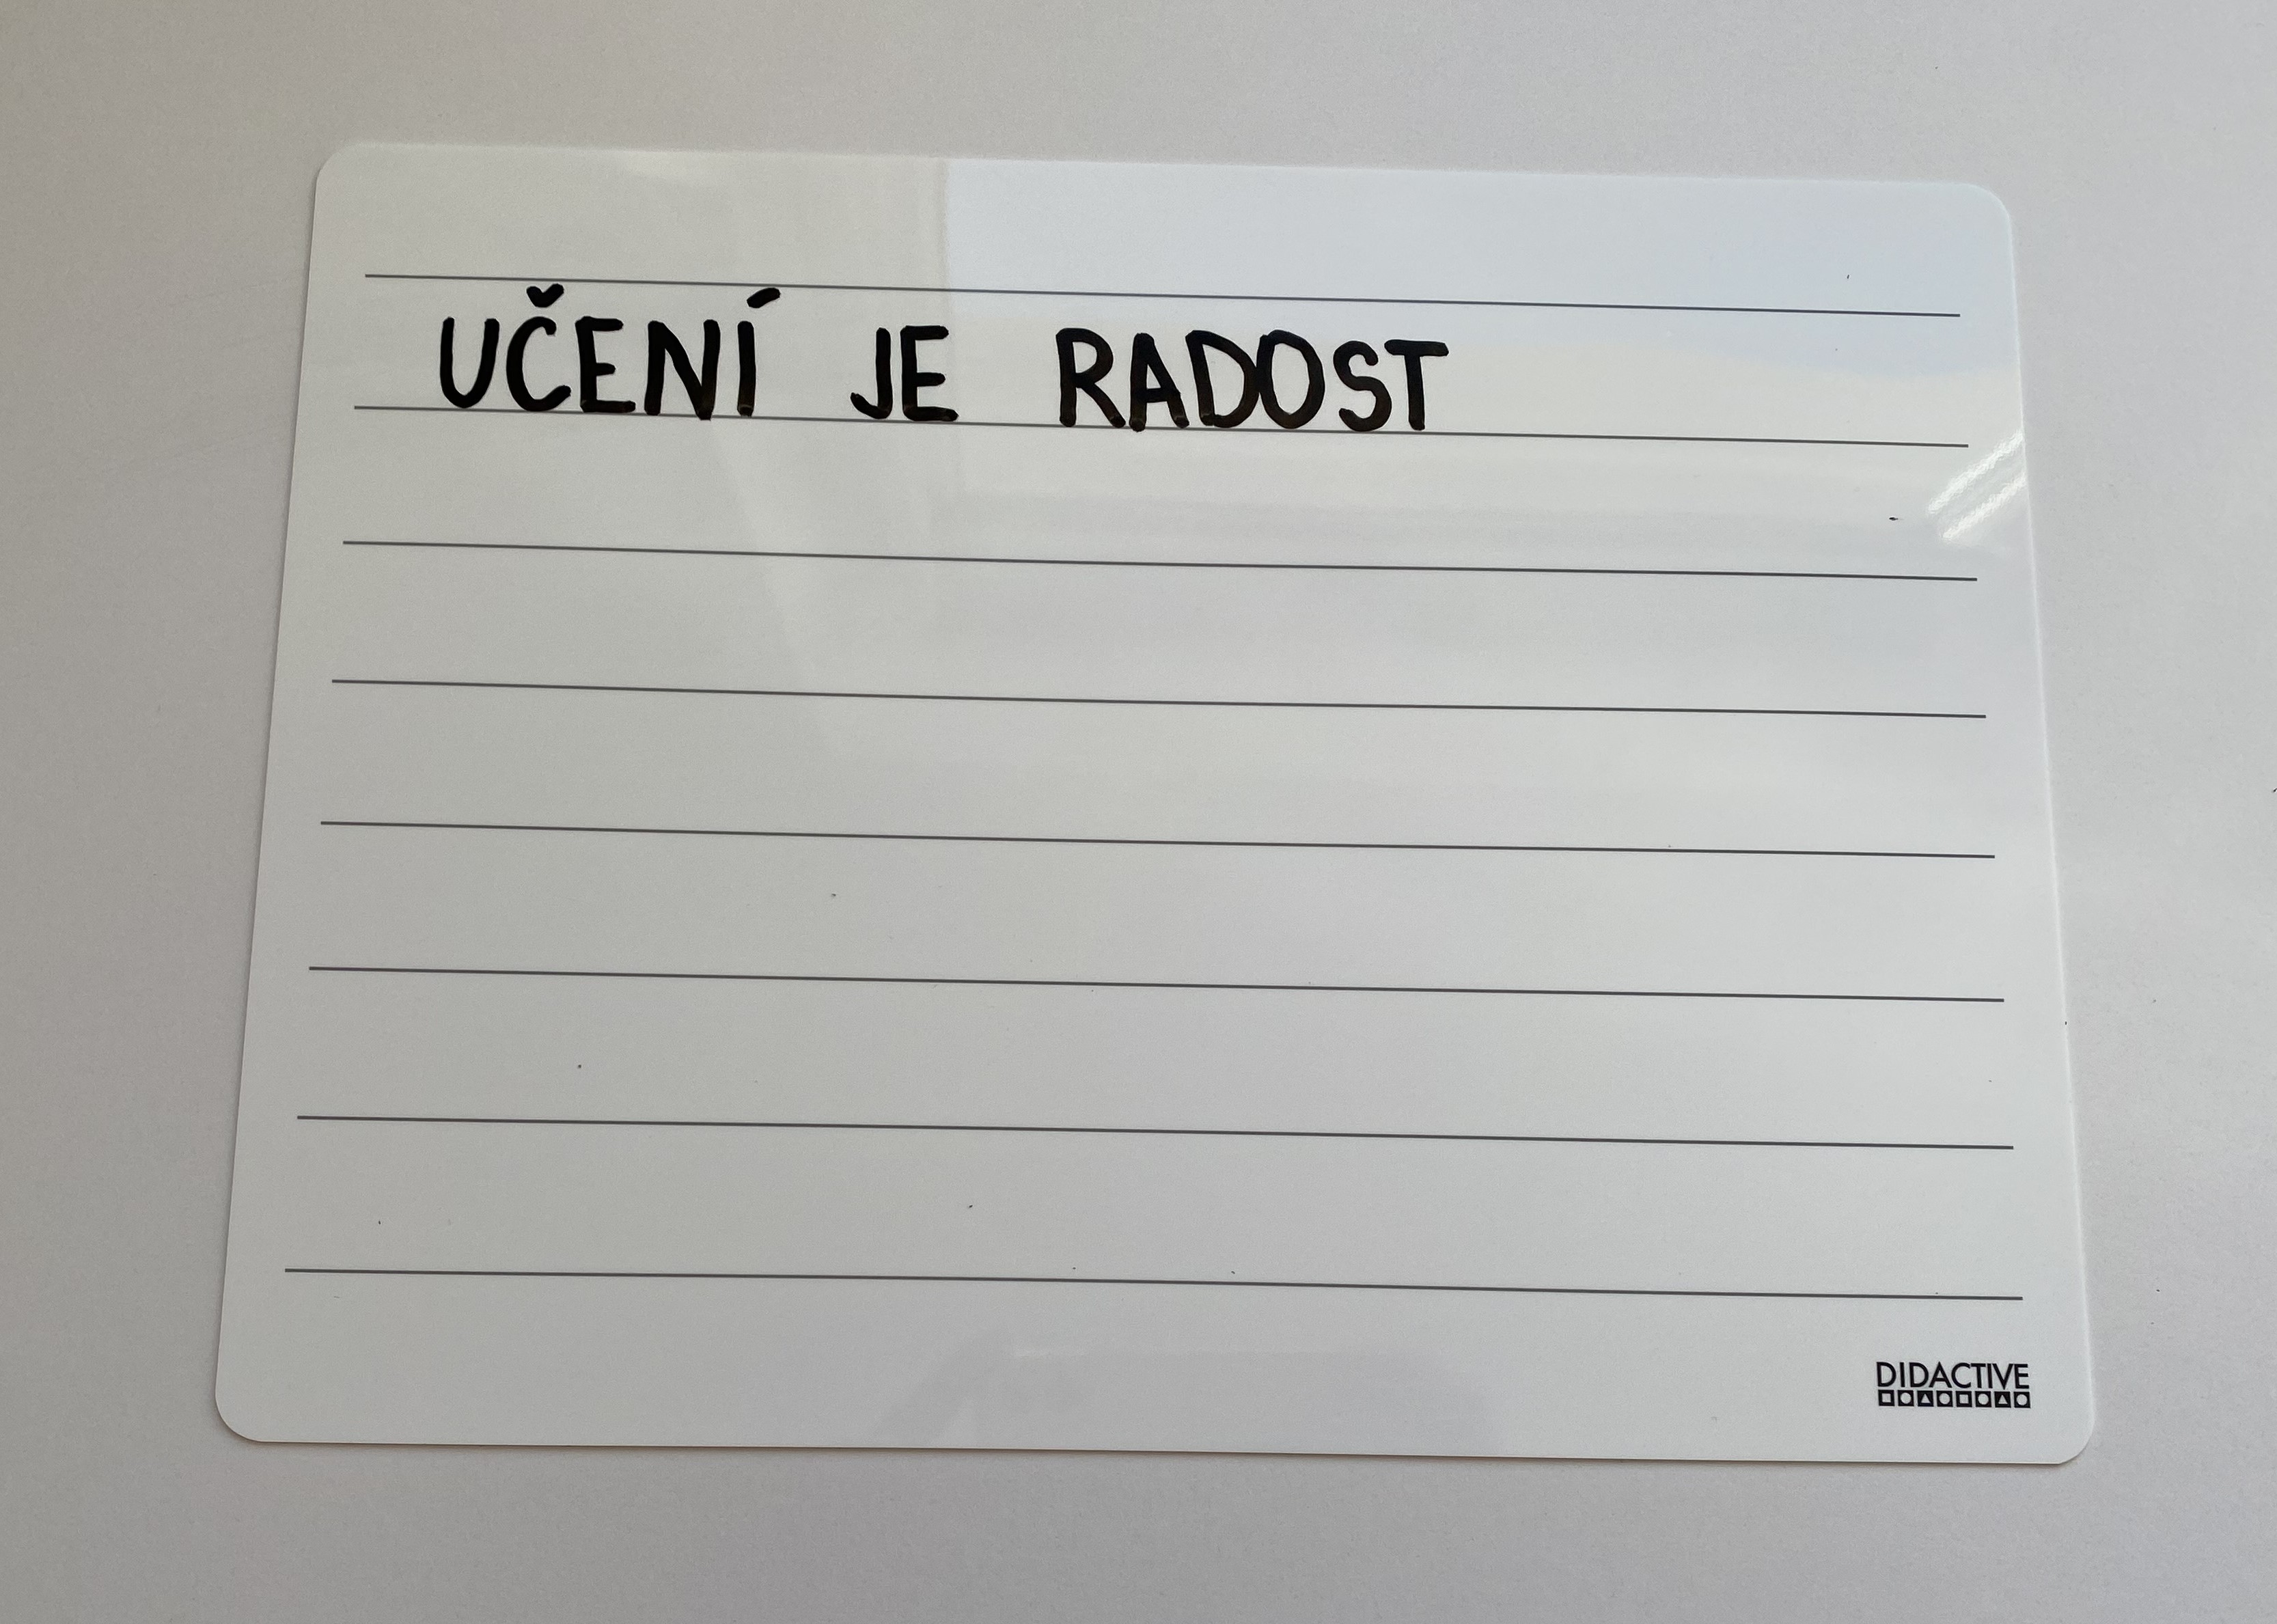 UČENÍ JE RADOST
DIDACTIVE